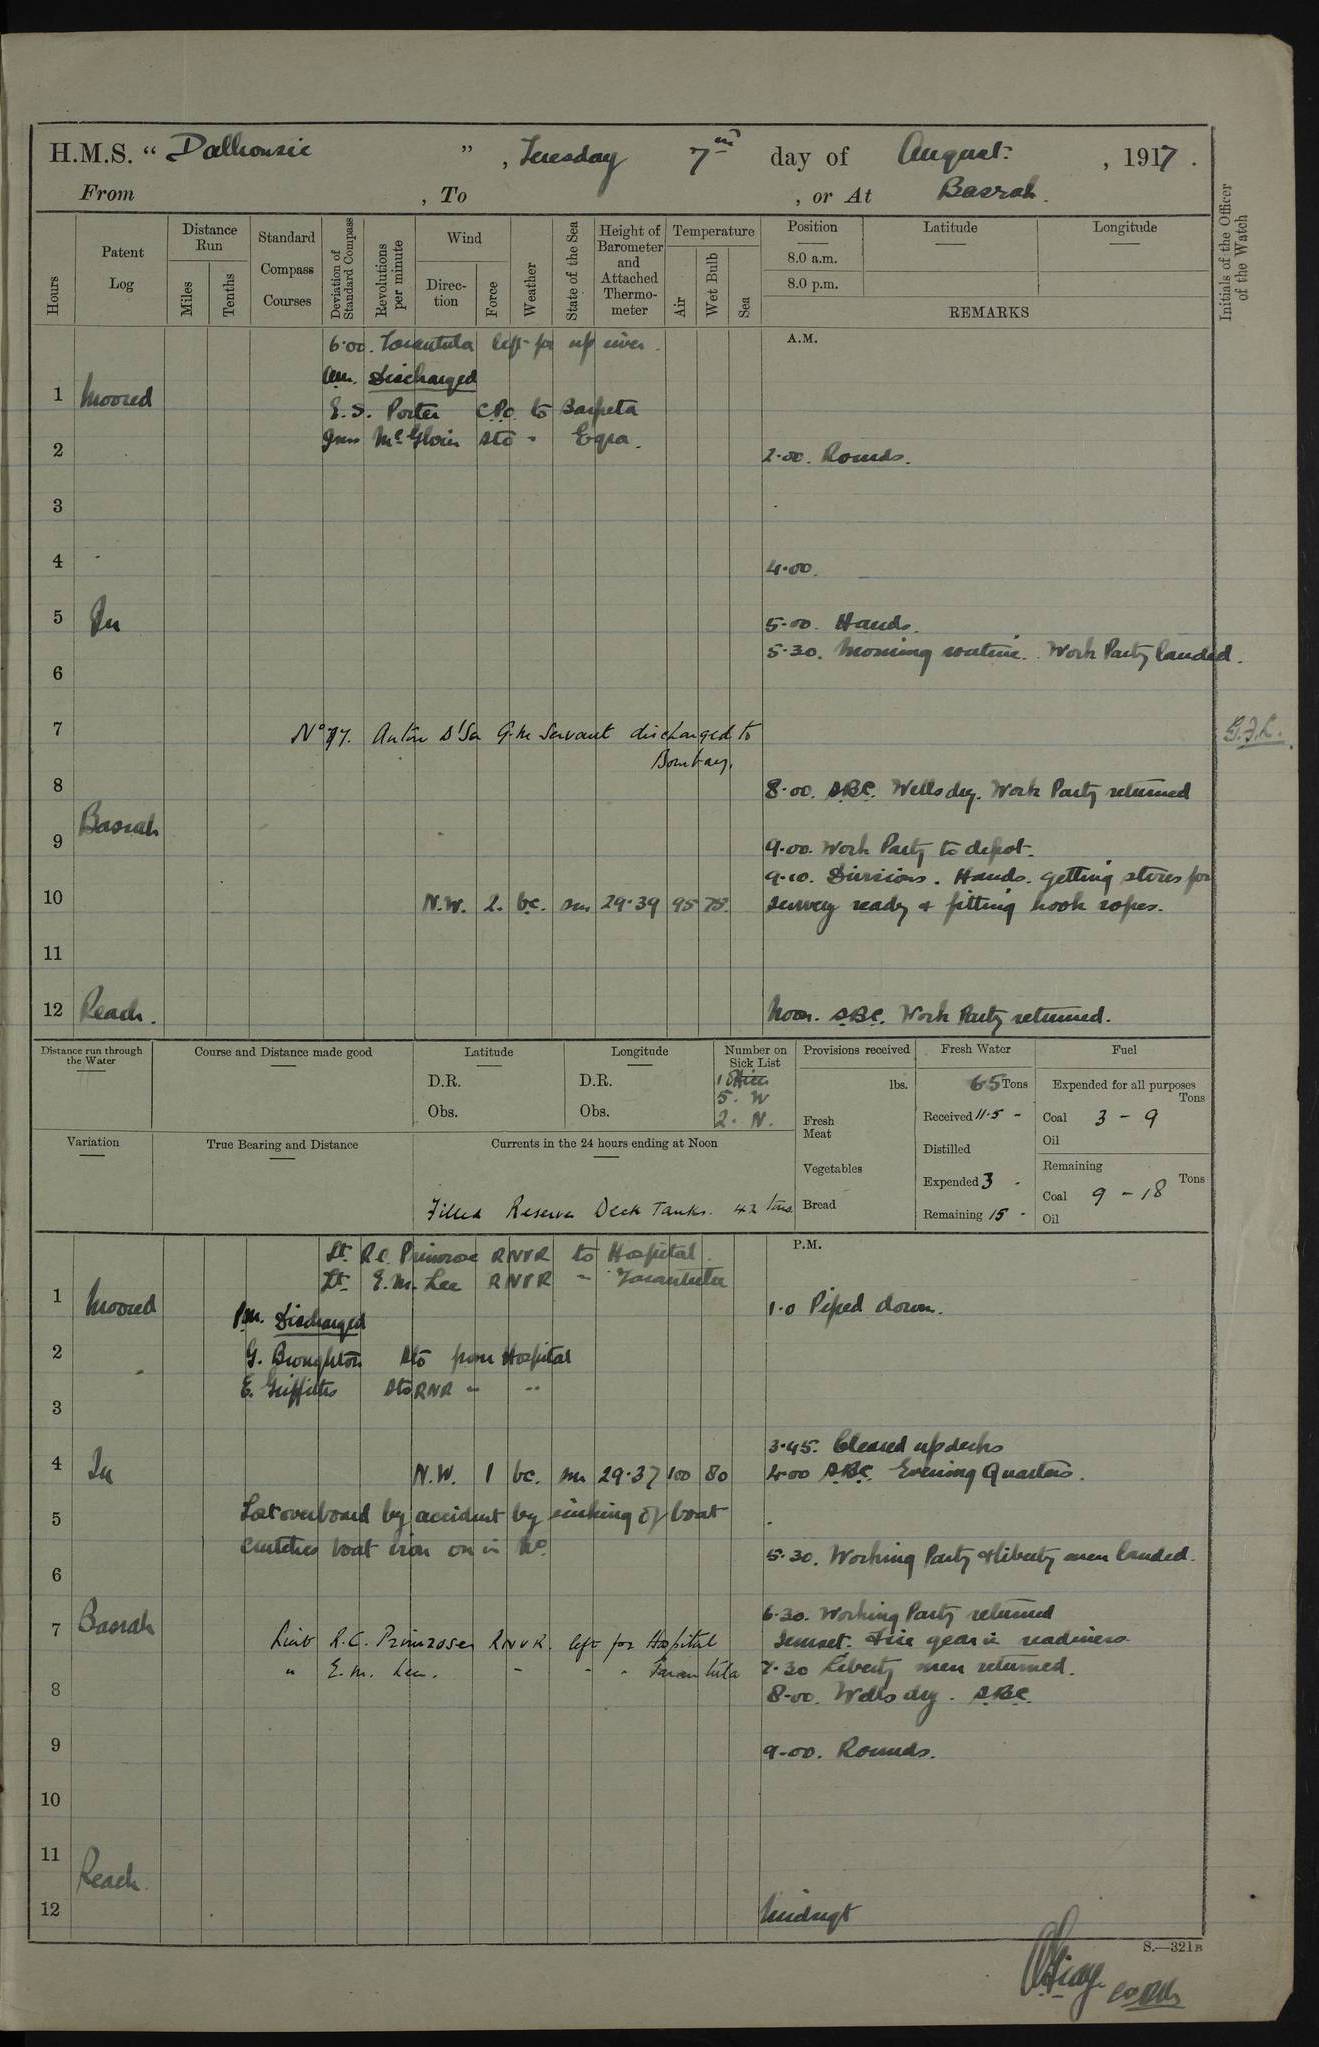 H.M.S. “ Dalhousie ” , Tuesday 7th day of August , 1917 .
From , To , or At Basrah.
Hours
Patent Log
Distance Run
Miles
Tenths
Standard Compass Courses
Deviation of Standard Compass
Revolutions per minute
Wind
Direction
Force
Weather
State of the Sea
Height of Barometer and Attached Thermometer
Temperature
Air
Wet Bulb
Sea
Position
8.0 a.m.
8.0 p.m.
Latitude
Longitude
REMARKS
Initials of the Officer of the Watch
A.M.
6.00. Tarantula left for up river.
Am. Discharged
1 Moored
E.S. Porter C.P.O. to Barpeta
McGloin Sto " Egra.
2
2.00. Rounds.
3
4
4.00.
5 In
5.00. Hands.
5.30. Morning routine. Work Party landed.
6
7
Anton D'Sa G.M. Servant discharged to
Bombay.
G.F.L.
8
8.00. S.B.C. Wells dry. Work Party returned
Basrah
9
9.00. Work Party to depot.
9.10. Divisions. Hands. getting stores for
10 N.W. 2. bc. sm 29.39 95 78 survey ready & fitting hook ropes.
11
12 Reach.
Noon. S.B.C. Work Party returned.
Distance run through the Water
Course and Distance made good
Latitude
D.R.
Obs.
Longitude
D.R.
Obs.
Number on Sick List
5. W
2. N.
Provisions received
lbs.
Fresh Meat
Vegetables
Bread
Fresh Water
65 Tons
Received 11.5 -
Distilled
Expended 3 -
Remaining 15 -
Fuel
Expended for all purposes
Tons
Coal 3 - 9
Oil
Remaining
Tons
Coal 9 - 18
Oil
Variation
True Bearing and Distance
Currents in the 24 hours ending at Noon
Filled Reserve Deck Tanks. 42 tons
P.M.
Lt. R.C. Primrose RNVR to Hospital.
Lt. E.M. Lee RNVR " Tarantula
1 Moored
1.0 Piped down.
P.M. Discharged
2
G. Broughton Sto from Hospital
E. Griffiths Sto RNR " "
3
3.45. Cleared up decks
4 In N.W. 1 bc. sm 29.37 100 80 4.00 S.B.C. Evening Quarters.
Lost overboard by accident by sinking of boat
5
Crutches boat iron one in No.
5.30. Working Party & liberty men landed.
6
6.30. Working Party returned
7 Basrah
Lieut R.C. Primrose RNVR. left for Hospital
Sunset. Fire gear in readiness.
" E.M. Lee. " " " Tarantula
7.30 Liberty men returned.
8
8.00. Wells dry. S.B.C.
9
9.00. Rounds.
10
11
Reach.
12
Midngt
S.—321B